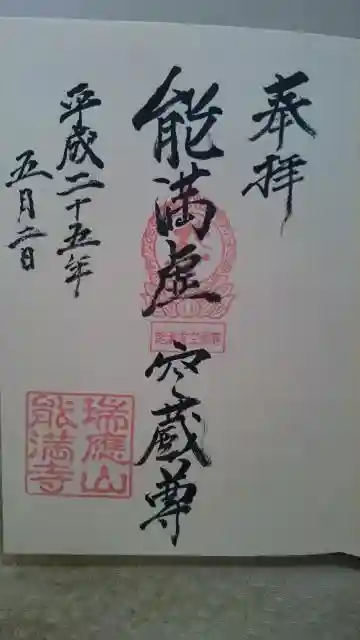 奉拝
能満虚空蔵尊
平成二十五年
五月二日
瑞應山
能満寺